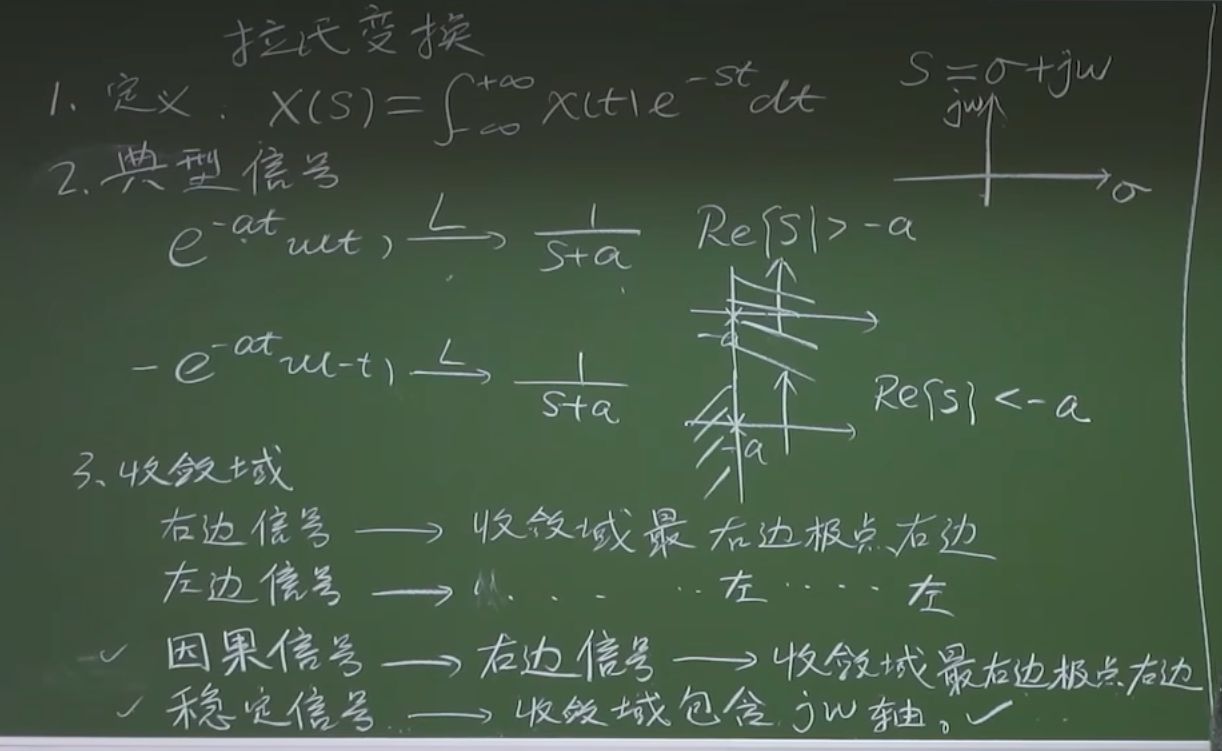 拉氏变换
1. 定义: X(S)=∫_{-∞}^{+∞} x(t)e^{-st}dt
S=σ+jw
jw
σ
2. 典型信号
e^{-at}u(t) —L→ 1/(S+a) Re{S}>-a
-a
-e^{-at}u(-t) —L→ 1/(S+a) Re{S}<-a
-a
3、收敛域
右边信号 ⟶ 收敛域最右边极点右边
左边信号 ⟶ 〃 . . . . . 左 . . . . 左
✓ 因果信号 ⟶ 右边信号 ⟶ 收敛域最右边极点右边
✓ 稳定信号 ⟶ 收敛域包含jw轴。✓